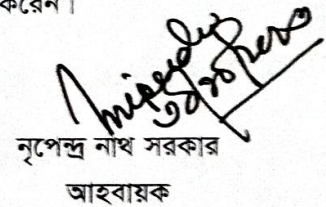 করেন।
নৃপেন্দ্র নাথ সরকার
আহবায়ক